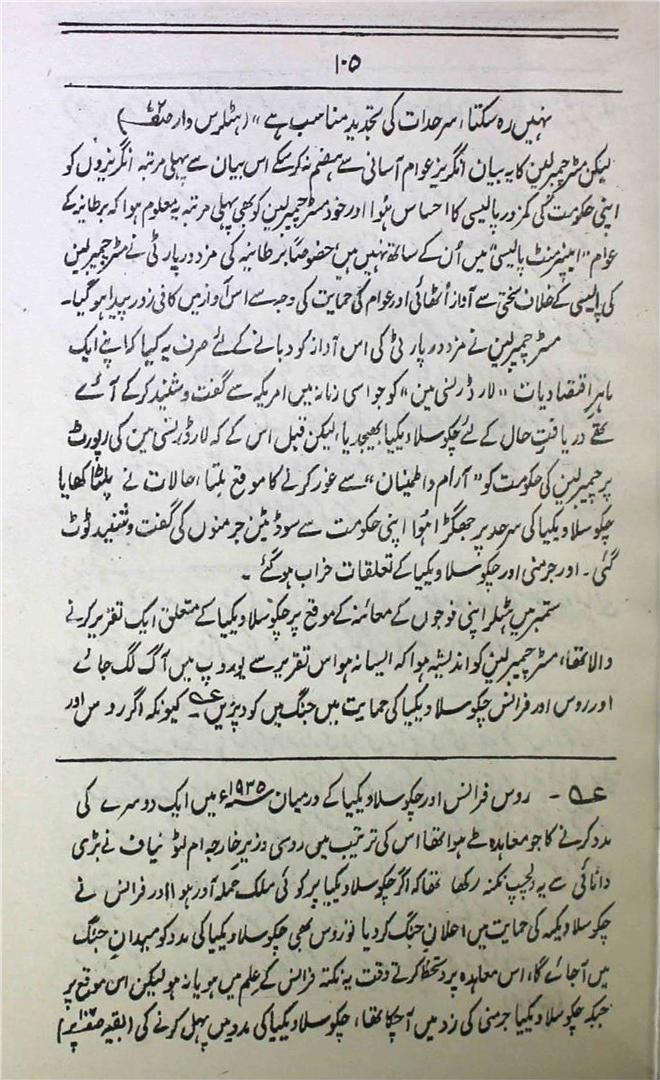 ۱۰۵
نہیں رہ سکتا، سرحدات کی تجدید مناسب ہے" (ہٹلرس وار صفحہ ۷۲)
لیکن مسٹر چمبرلین کا یہ بیان انگریز عوام آسانی سے ہضم نہ کر سکے اس بیان سے پہلی مرتبہ انگریزوں کو
اپنی حکومت کی کمزور پالیسی کا احساس ہُوا اور خود مسٹر چمبرلین کو بھی پہلی مرتبہ یہ معلوم ہوا کہ برطانیہ کے
عوام "اپیزمنٹ پالیسی" میں اُن کے ساتھ نہیں ہیں خصوصاً برطانیہ کی مزدور پارٹی نے مسٹر چمبرلین
کی پالیسی کے خلاف سختی سے آواز اُٹھائی اور عوام کی حمایت کی وجہ سے اس آواز میں کافی زور پیدا ہو گیا۔
مسٹر چمبرلین نے مزدور پارٹی کی اس آواز کو دبانے کے لئے صرف یہ کیا کہ اپنے ایک
ماہر اقتصادیات "لارڈ رنسی مین" کو جو اسی زمانہ میں امریکہ سے گفت و شنید کر کے آئے
تھے دریافتِ حال کے لئے چکوسلاویکیا بھیجدیا، لیکن قبل اس کے کہ لارڈ رنسی مین کی رپورٹ
پر چمبرلین کی حکومت کو "آرام و اطمینان" سے غور کرنے کا موقع ملتا، حالات نے پلٹا کھایا
چکوسلاویکیا کی سرحد پر جھگڑا ہُوا اپنی حکومت سے سوڈیٹن جرمنوں کی گفت و شنید ٹوٹ
گئی۔ اور جرمنی اور چکوسلاویکیا کے تعلقات خراب ہو گئے۔
ستمبر میں ہٹلر اپنی فوجوں کے معائنہ کے موقع پر چکوسلاویکیا کے متعلق ایک تقریر کرنے
والا تھا، مسٹر چمبرلین کو اندیشہ ہوا کہ ایسا نہ ہو اس تقریر سے یوروپ میں آگ لگ جائے
اور روس اور فرانس چکوسلاویکیا کی حمایت میں جنگ میں کود پڑیں کیونکہ اگر روس اور
روس فرانس اور چکوسلاویکیا کے درمیان ۱۹۳۵ء میں ایک دوسرے کی
مدد کرنے کا جو معاہدہ طے ہوا تھا اس کی ترتیب میں روسی وزیر خارجہ ام لٹویناف نے بڑی
دانائی سے یہ دلچسپ نکتہ رکھا تھا کہ اگر چکوسلاویکیا پر کوئی ملک حملہ آور ہوا اور فرانس نے
چکوسلاویکیہ کی حمایت میں اعلان جنگ کر دیا تو روس بھی چکوسلاویکیا کی مدد کو میدانِ جنگ
میں آجائے گا، اس معاہدہ پر دستخط کرتے وقت یہ نکتہ فرانس کے علم میں ہو یا نہ ہو لیکن اس موقع پر
جبکہ چکوسلاویکیا جرمنی کی زد میں آچکا تھا، چکوسلاویکیا کی مدد میں پہل کرنے کی (بقیہ صفحہ